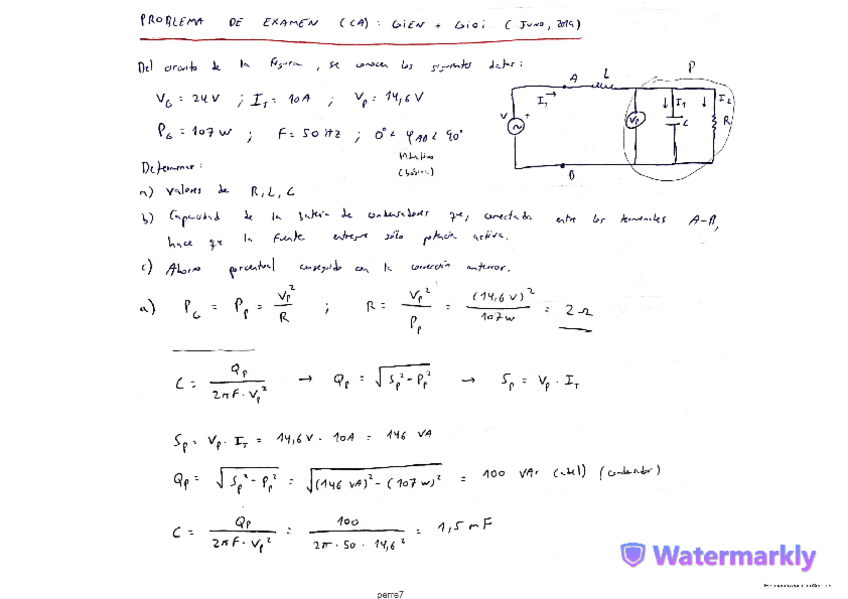 PROBLEMA DE EXAMEN (CA): GIEN + GIOI (JUNIO, 2019)
Del circuito de la figura, se conocen los siguientes datos:
V_G = 24 V ; I_T = 10 A ; V_P = 14,6 V
P_G = 107 W ; F = 50 Hz ; 0° < φ_AB < 90°
inductivo
(bobina)
Determinar:
a) Valores de R, L, C
b) Capacidad de la batería de condensadores que, conectada entre los terminales A-B,
hace que la fuente entregue sólo potencia activa.
c) Ahorro porcentual conseguido con la corrección anterior.
A L P
V + I_T V_P I_1 C I_2 R
B
a) P_G = P_P = V_P² / R ; R = V_P² / P_P = (14,6 V)² / 107 W = 2 Ω
C = Q_P / 2πF·V_P² → Q_P = √(S_P² - P_P²) → S_P = V_P · I_T
S_P = V_P · I_T = 14,6 V · 10 A = 146 VA
Q_P = √(S_P² - P_P²) = √((146 VA)² - (107 W)²) = 100 VAr (condensador)
C = Q_P / 2πF·V_P² = 100 / 2π·50·14,6² = 1,5 mF
Watermarkly
perre7